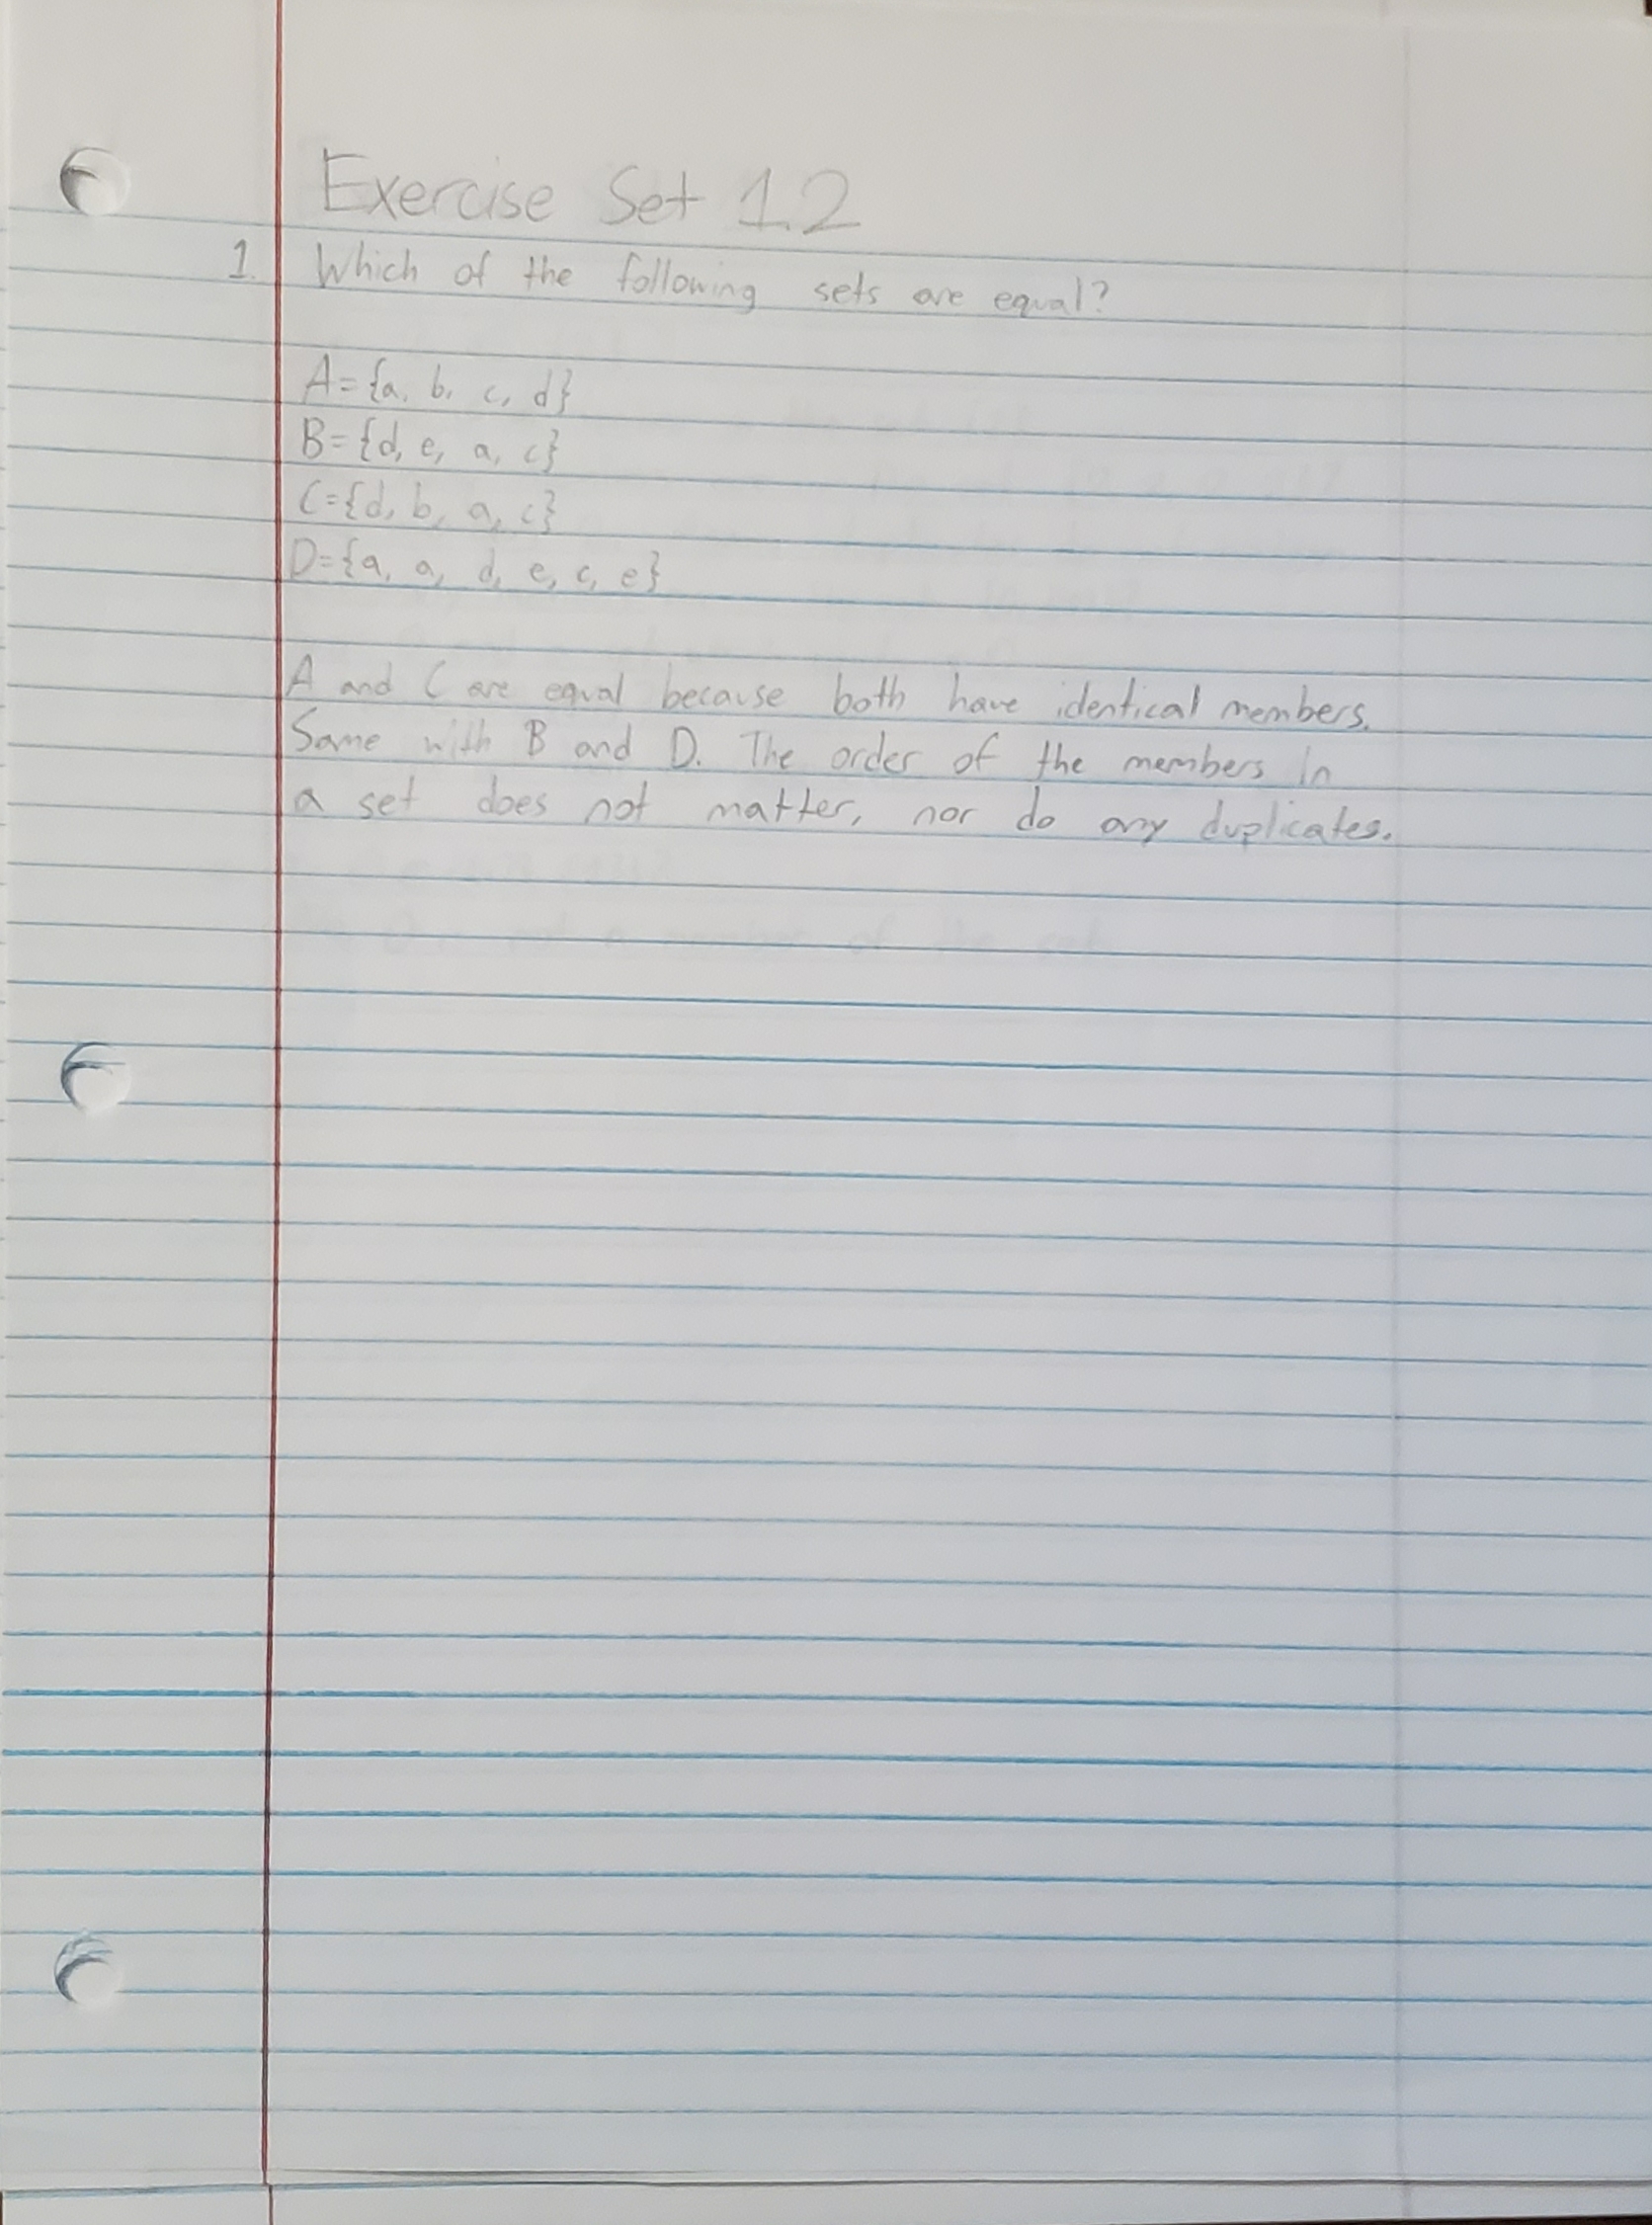 Exercise Set 1.2
1. Which of the following sets are equal?
A={a, b, c, d}
B={d, e, a, c}
C={d, b, a, c}
D={a, a, d, e, c, e}
A and C are equal because both have identical members.
Same with B and D. The order of the members in
a set does not matter, nor do any duplicates.